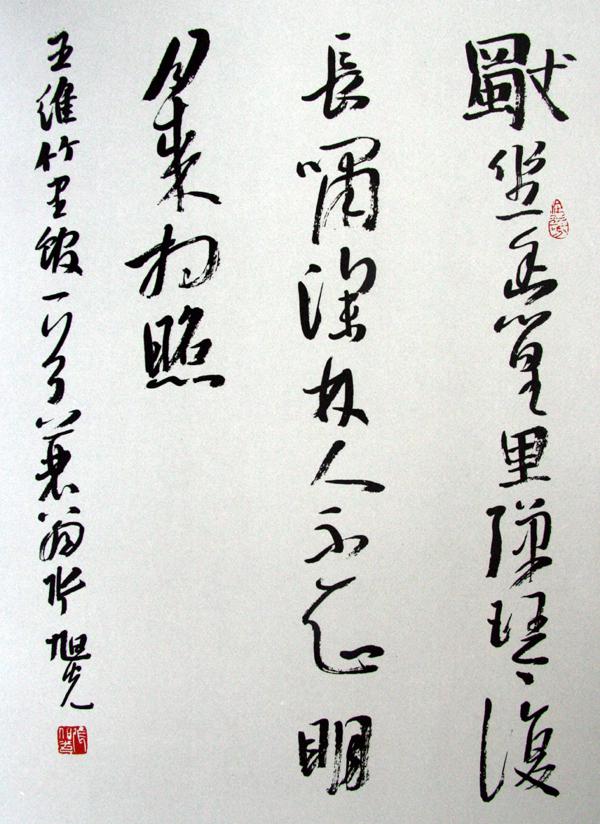 獨坐幽篁里彈琴復
長嘯深林人不知明
月來相照
王維竹里館一首 旭光